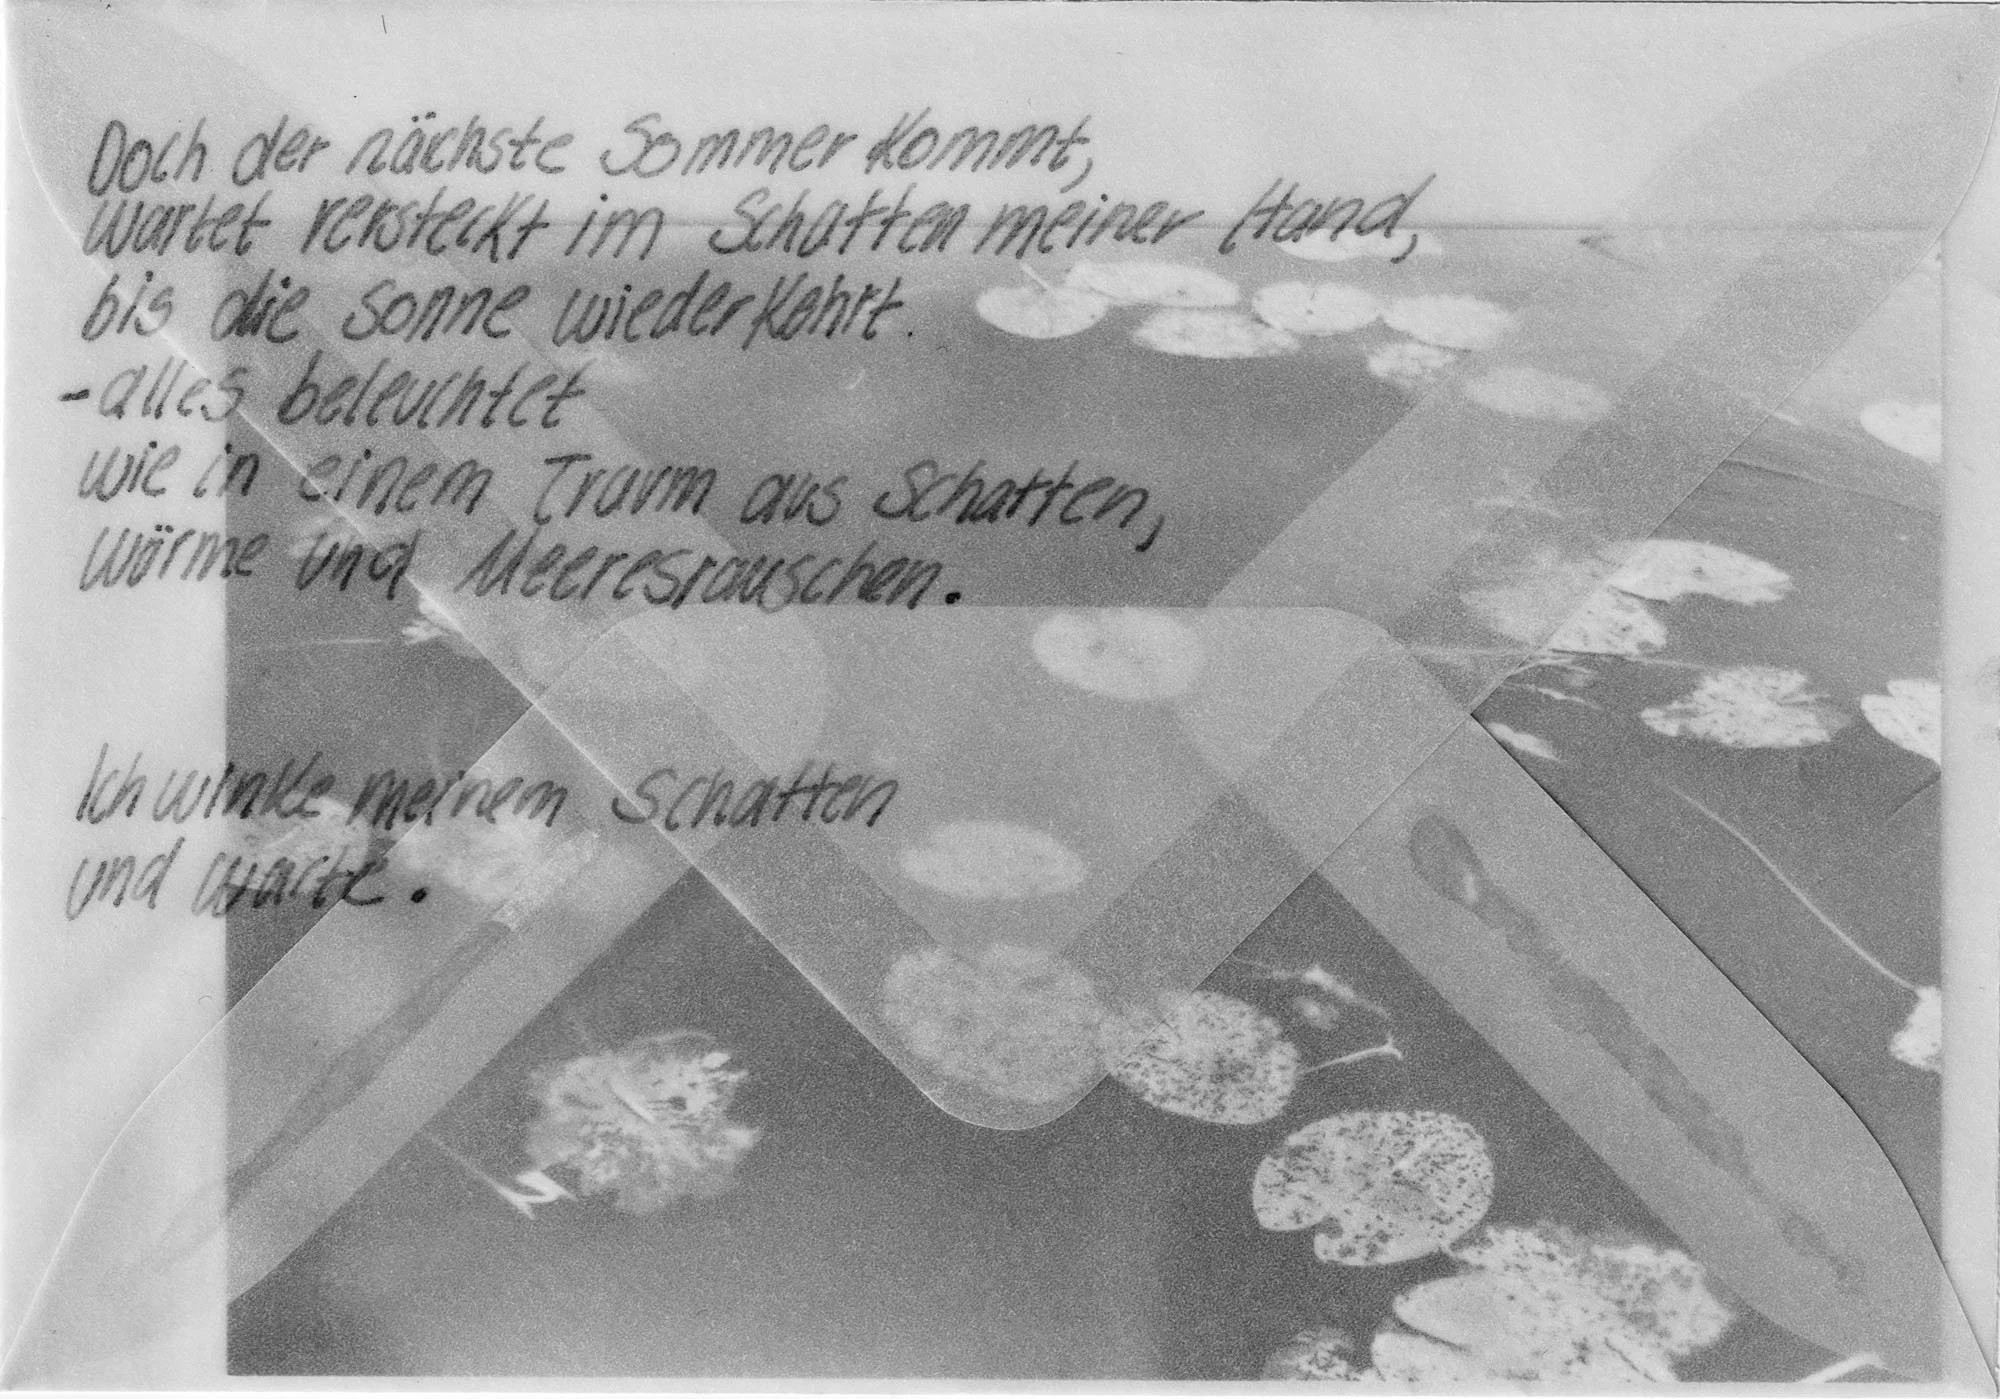 Doch der nächste Sommer kommt,
wartet versteckt im Schatten meiner Hand,
bis die Sonne wiederkehrt.
-alles beleuchtet
wie in einem Traum aus Schatten,
Wärme und Meeresrauschen.
Ich winke meinem Schatten
und warte.